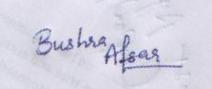 Bushra
Afsar